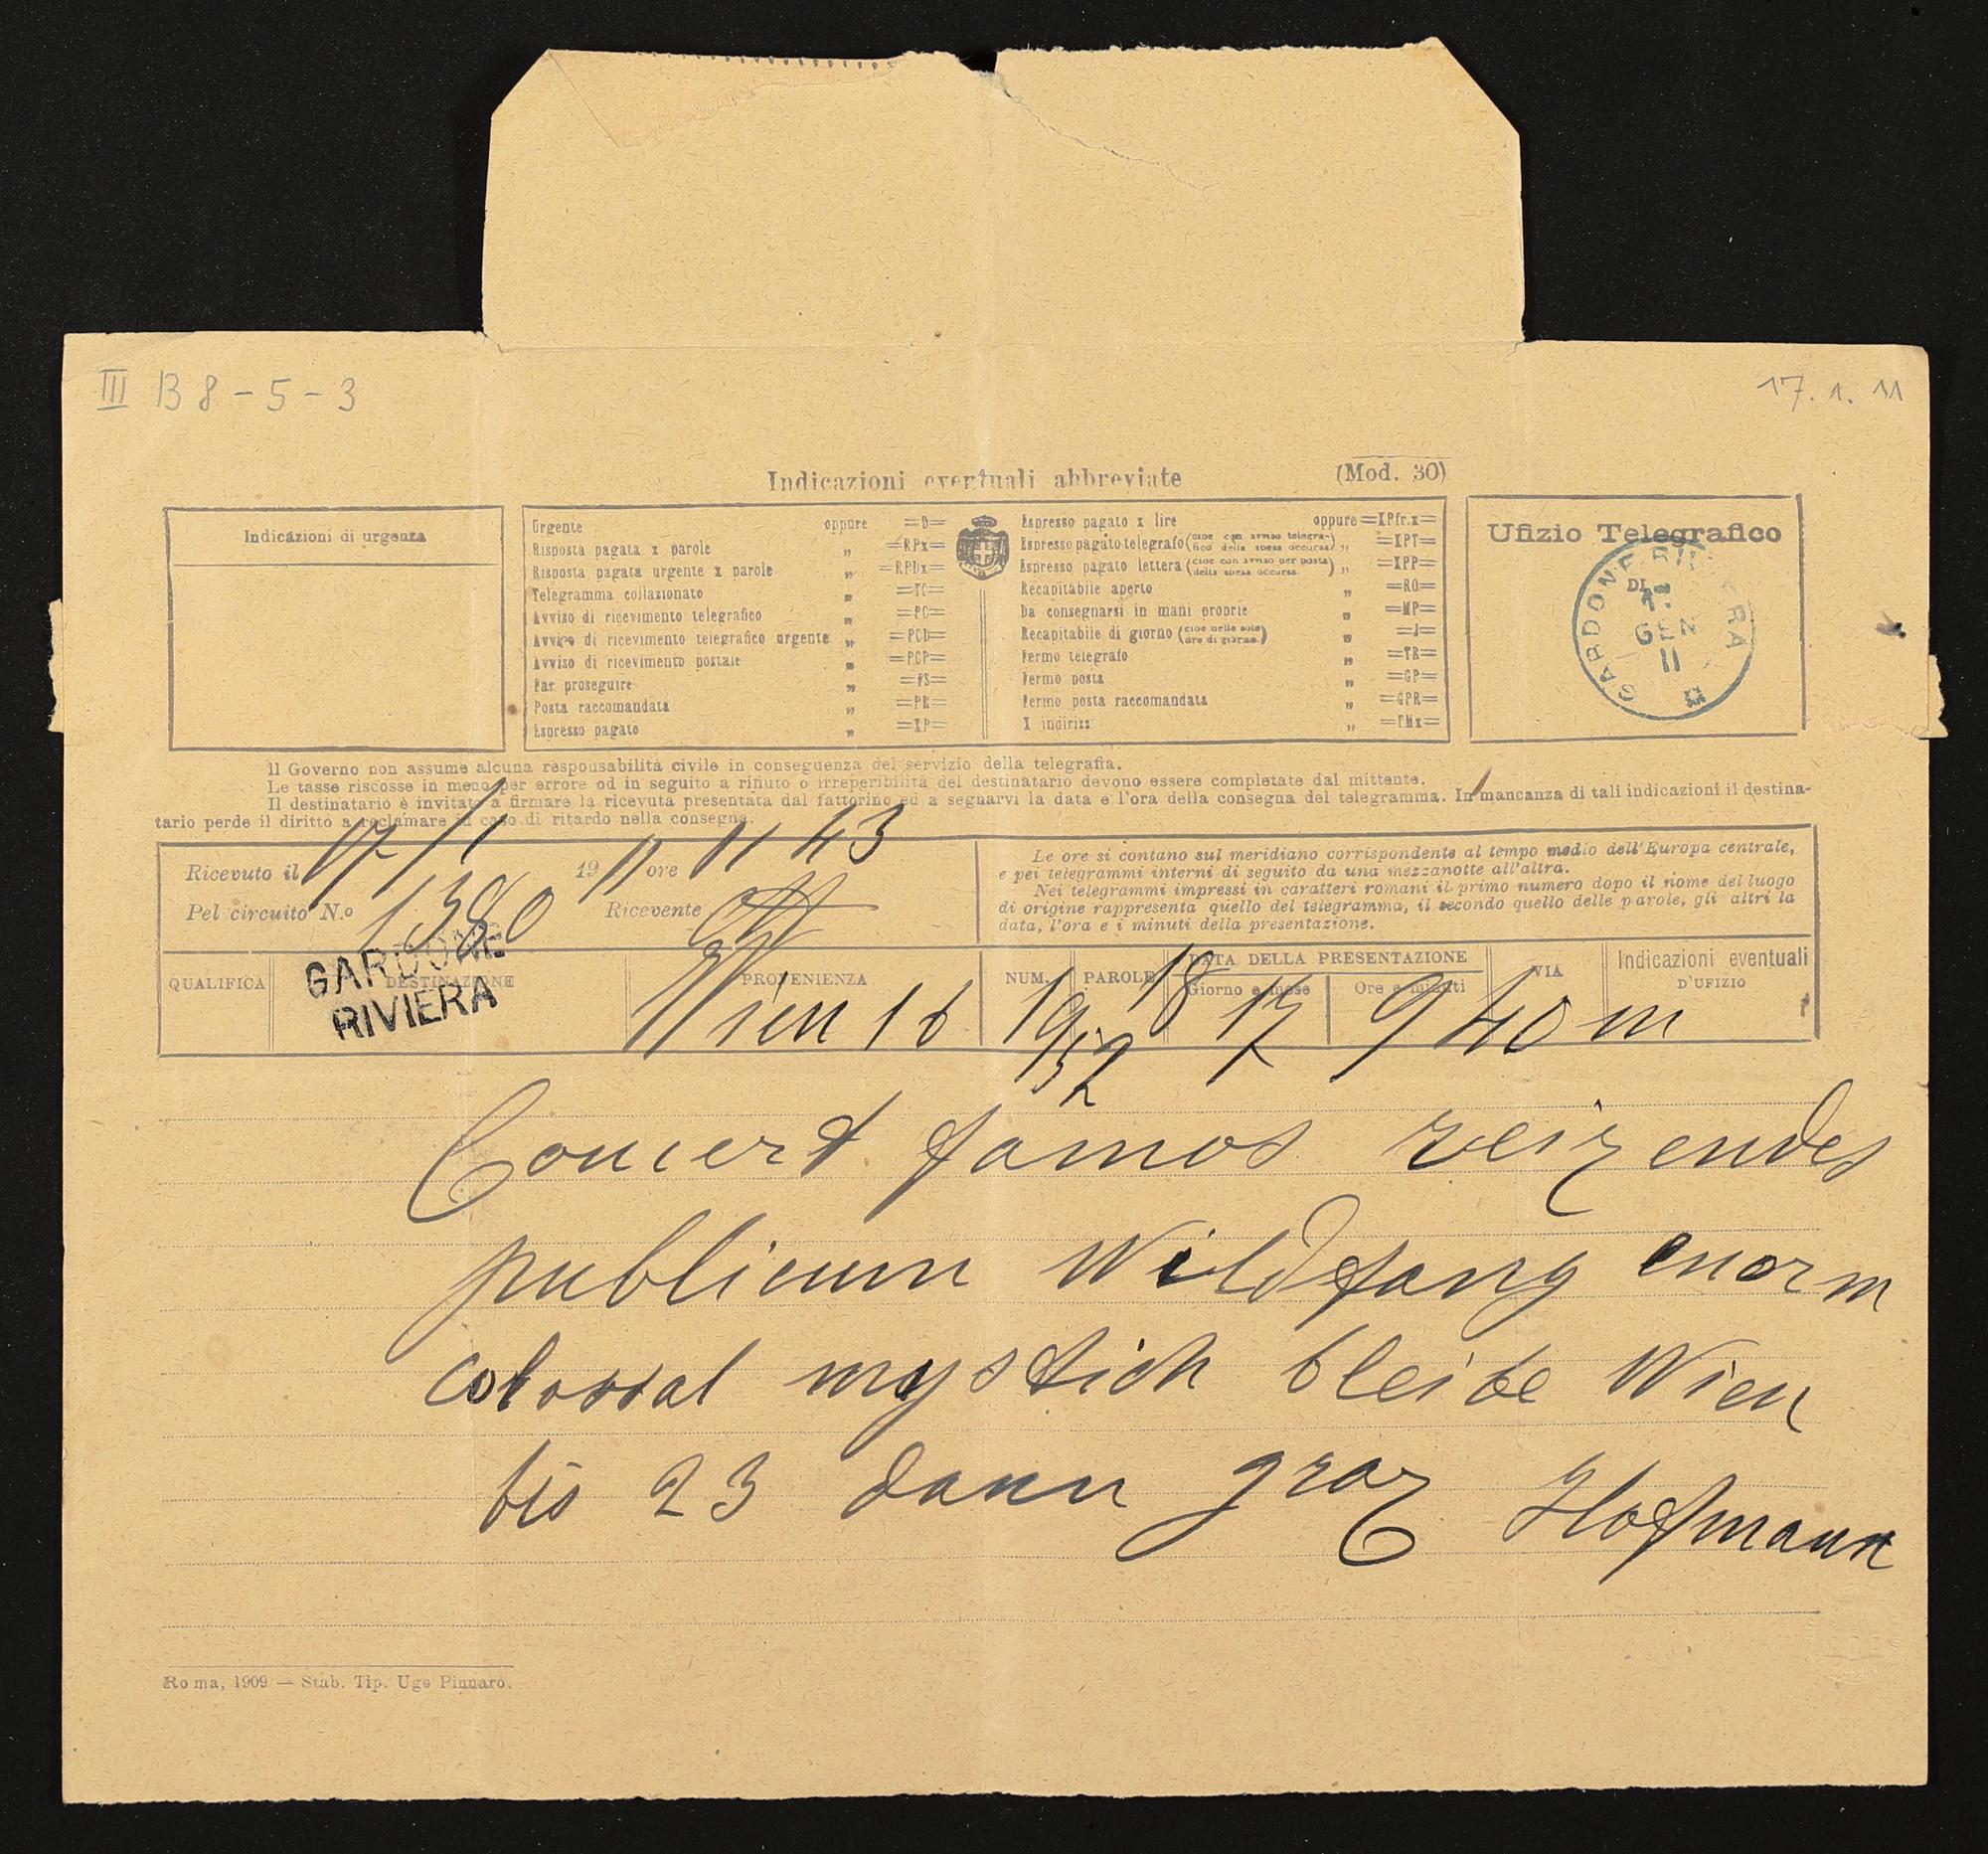 III B 8 - 5 - 3
17. 1. 11
Indicazioni eventuali abbreviate
(Mod. 30)
Indicazioni di urgenza
Urgente oppure =D=
Risposta pagata x parole „ =RPx=
Risposta pagata urgente x parole „ =RPDx=
Telegramma collazionato „ =TC=
Avviso di ricevimento telegrafico „ =PC=
Avviso di ricevimento telegrafico urgente „ =PCD=
Avviso di ricevimento postale „ =PCP=
Far proseguire „ =FS=
Posta raccomandata „ =PR=
Espresso pagato „ =XP=
Espresso pagato x lire oppure =XPfr.x=
Espresso pagato telegrafo (cioe con avviso telegra-fico della spesa occorsa) „ =XPT=
Espresso pagato lettera (cioe con avviso per posta della spesa occorsa) „ =XPP=
Recapitabile aperto „ =RO=
Da consegnarsi in mani proprie „ =MP=
Recapitabile di giorno (cioe nelle sole ore di giorno) „ =J=
Fermo telegrafo „ =TR=
Fermo posta „ =GP=
Fermo posta raccomandata „ =GPR=
X indirizz „ =TMx=
Ufizio Telegrafico
DI
GARDONE RIVIERA
11
Il Governo non assume alcuna responsabilità civile in conseguenza del servizio della telegrafia.
Le tasse riscosse in meno per errore od in seguito a rifiuto o irreperibilità del destinatario devono essere completate dal mittente.
Il destinatario è invitato a firmare la ricevuta presentata dal fattorino ed a segnarvi la data e l'ora della consegna del telegramma. In mancanza di tali indicazioni il destina-
tario perde il diritto a reclamare in caso di ritardo nella consegna.
Ricevuto il 17/1 1911 ore 11 43
Pel circuito N.o 1380 Ricevente
Le ore si contano sul meridiano corrispondente al tempo medio dell'Europa centrale,
e pei telegrammi interni di seguito da una mezzanotte all'altra.
Nei telegrammi impressi in caratteri romani il primo numero dopo il nome del luogo
di origine rappresenta quello del telegramma, il secondo quello delle parole, gli altri la
data, l'ora e i minuti della presentazione.
QUALIFICA DESTINAZIONE PROVENIENZA NUM. PAROLE DATA DELLA PRESENTAZIONE VIA Indicazioni eventuali
Giorno e mese Ore e minuti D'UFIZIO
GARDONE
RIVIERA
Wien 16 19 18 17 9 40 m
52
Concert famos reizendes
publicum Wildfang enorm
colossal mystich bleibe Wien
bis 23 dann graz Hofmann
Roma, 1909 — Stab. Tip. Ugo Pinnarò.